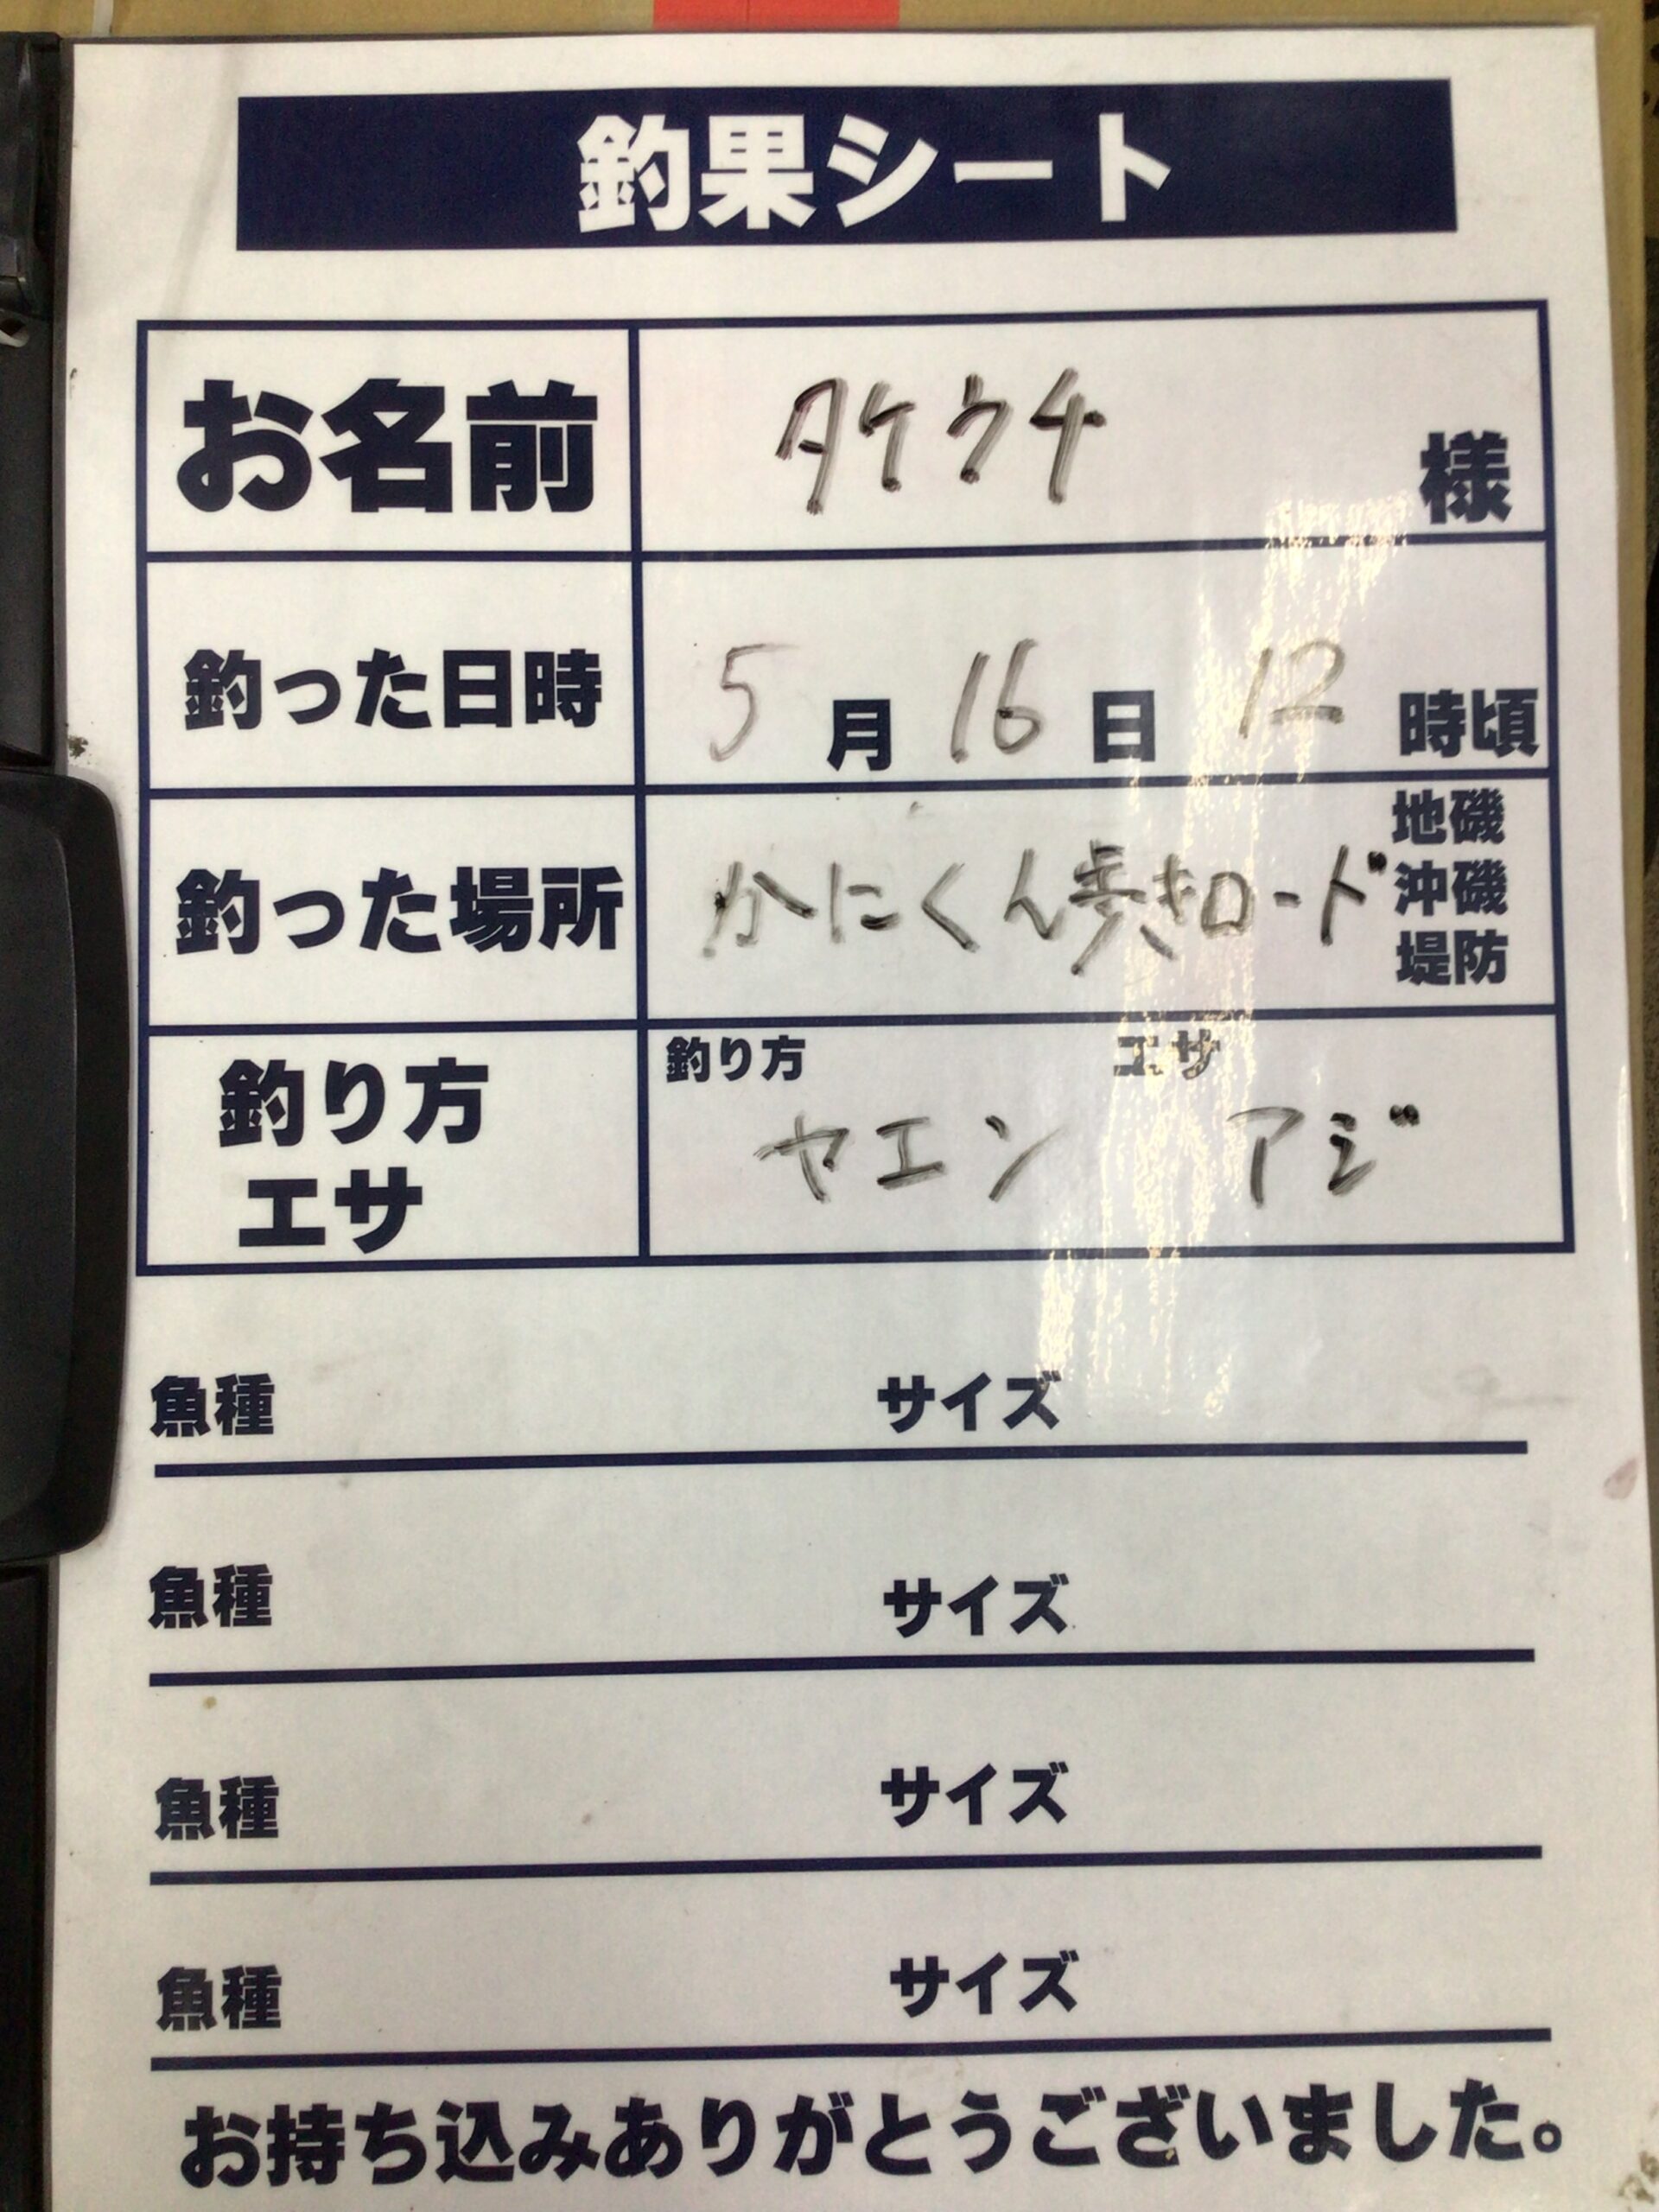 釣果シート
お名前 タケウチ 様
釣った日時 5月16日12時頃
釣った場所 かにくん歩きロード 地磯 沖磯 堤防
釣り方 エサ
釣り方 ヤエン エサ アジ
魚種 サイズ
魚種 サイズ
魚種 サイズ
魚種 サイズ
お持ち込みありがとうございました。